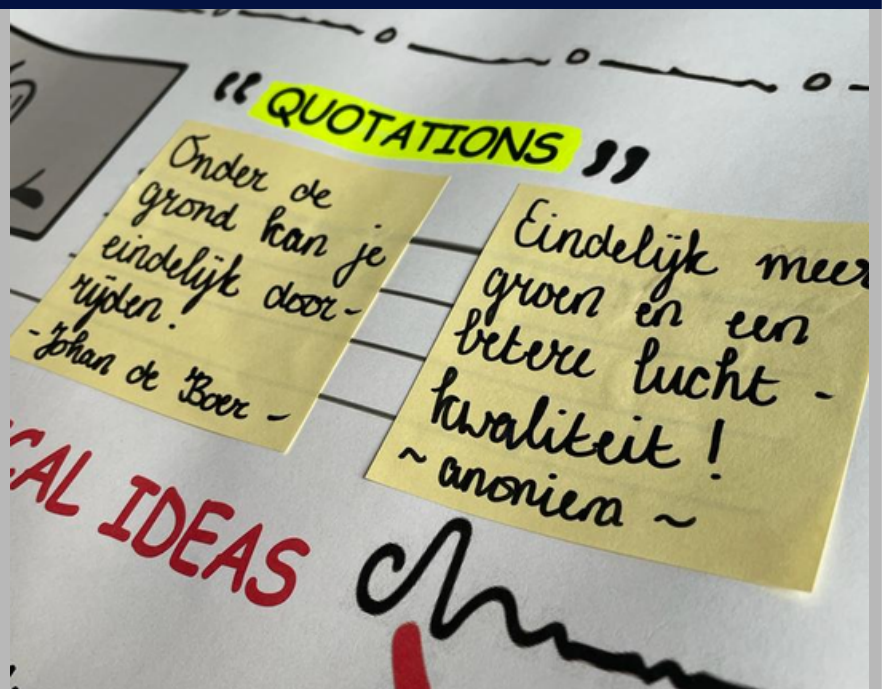 “ QUOTATIONS ”
Onder de
grond kan je
eindelijk door-
rijden.
- Johan de Boer -
Eindelijk meer
groen en een
betere lucht -
kwaliteit !
~ anoniem ~
CAL IDEAS